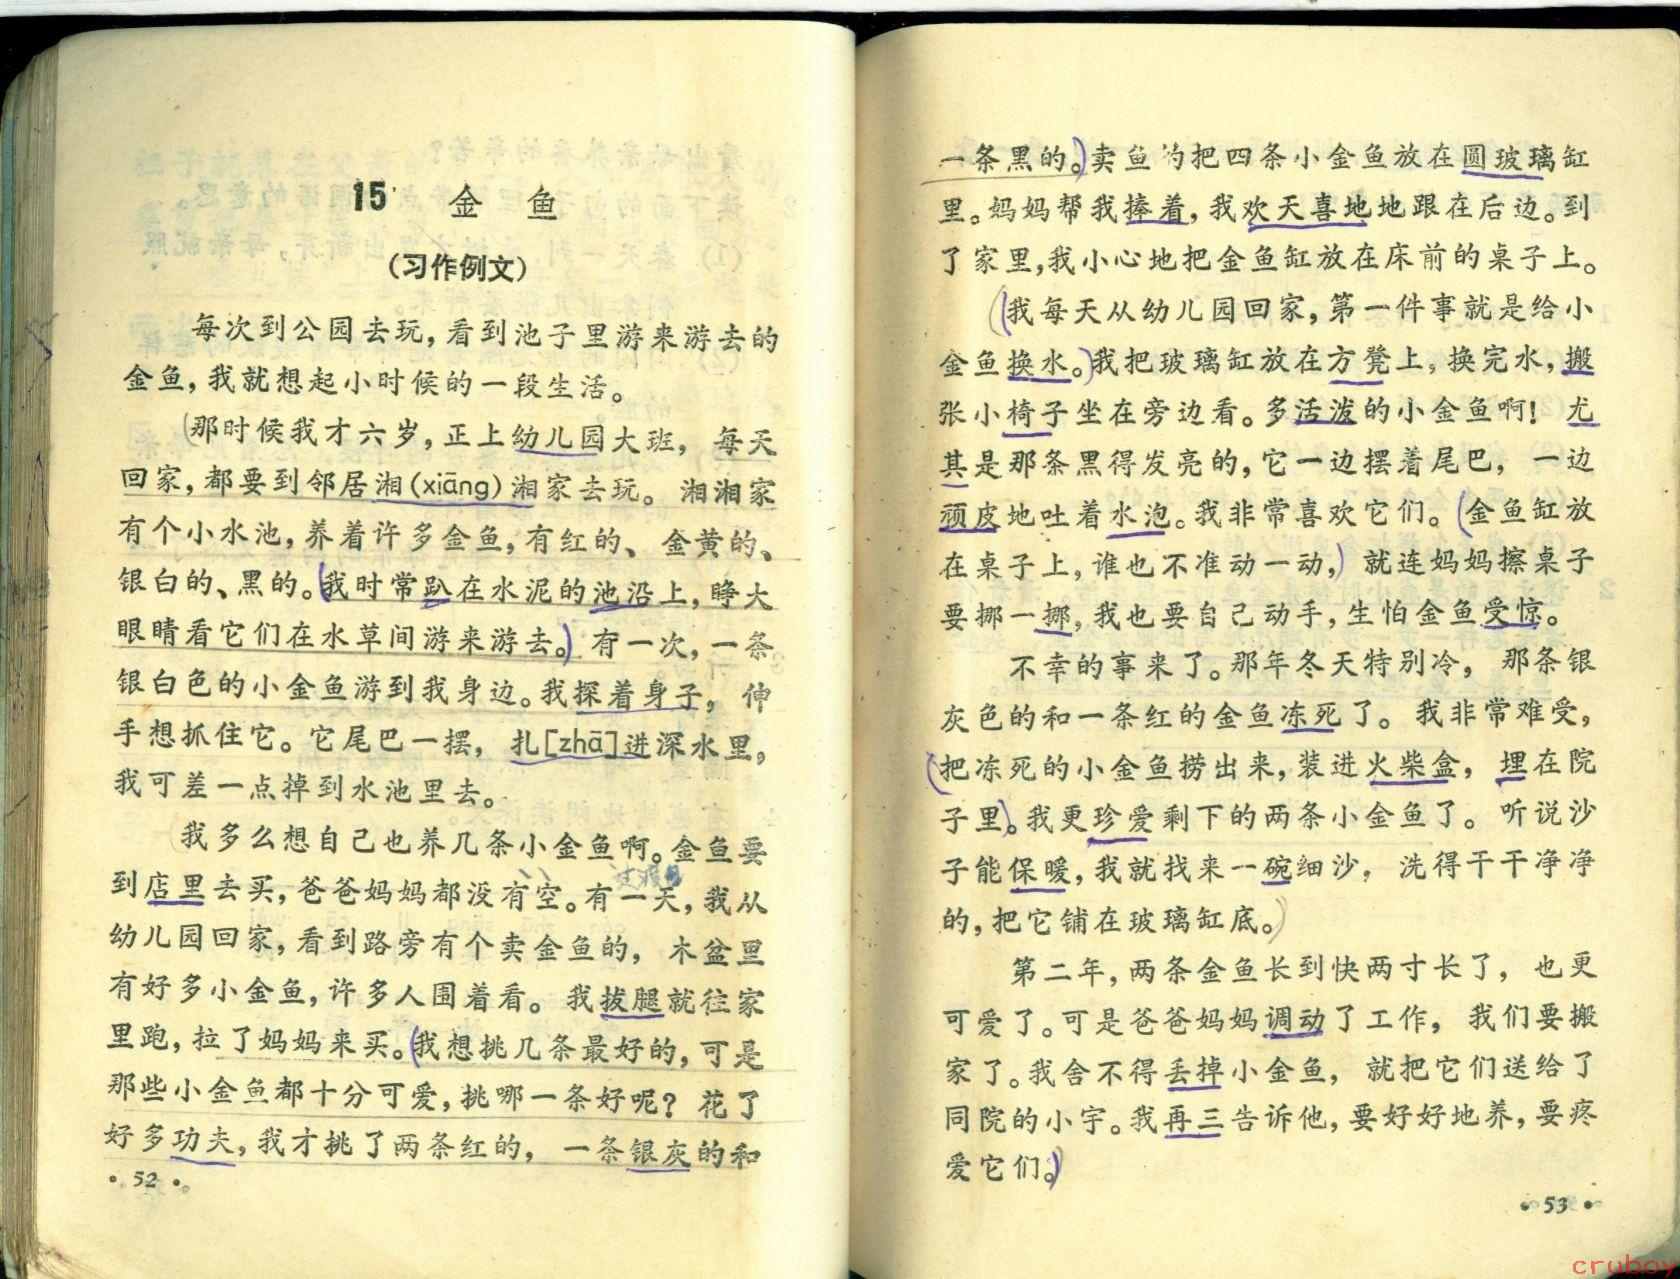 15 金 鱼
(习作例文)
每次到公园去玩，看到池子里游来游去的
金鱼，我就想起小时候的一段生活。
那时候我才六岁，正上幼儿园大班，每天
回家，都要到邻居湘(xiāng)湘家去玩。湘湘家
有个小水池，养着许多金鱼，有红的、金黄的、
银白的、黑的。我时常趴在水泥的池沿上，睁大
眼睛看它们在水草间游来游去。有一次，一条
银白色的小金鱼游到我身边。我探着身子，伸
手想抓住它。它尾巴一摆，扎[zhā]进深水里，
我可差一点掉到水池里去。
我多么想自己也养几条小金鱼啊。金鱼要
到店里去买，爸爸妈妈都没有空。有一天，我从
幼儿园回家，看到路旁有个卖金鱼的，木盆里
有好多小金鱼，许多人围着看。我拔腿就往家
里跑，拉了妈妈来买。我想挑几条最好的，可是
那些小金鱼都十分可爱，挑哪一条好呢？花了
好多功夫，我才挑了两条红的，一条银灰的和
·52·
一条黑的。卖鱼的把四条小金鱼放在圆玻璃缸
里。妈妈帮我捧着，我欢天喜地地跟在后边。到
了家里，我小心地把金鱼缸放在床前的桌子上。
我每天从幼儿园回家，第一件事就是给小
金鱼换水。我把玻璃缸放在方凳上，换完水，搬
张小椅子坐在旁边看。多活泼的小金鱼啊！尤
其是那条黑得发亮的，它一边摆着尾巴，一边
顽皮地吐着水泡。我非常喜欢它们。金鱼缸放
在桌子上，谁也不准动一动，就连妈妈擦桌子
要挪一挪，我也要自己动手，生怕金鱼受惊。
不幸的事来了。那年冬天特别冷，那条银
灰色的和一条红的金鱼冻死了。我非常难受，
把冻死的小金鱼捞出来，装进火柴盒，埋在院
子里。我更珍爱剩下的两条小金鱼了。听说沙
子能保暖，我就找来一碗细沙，洗得干干净净
的，把它铺在玻璃缸底。
第二年，两条金鱼长到快两寸长了，也更
可爱了。可是爸爸妈妈调动了工作，我们要搬
家了。我舍不得丢掉小金鱼，就把它们送给了
同院的小宇。我再三告诉他，要好好地养，要疼
爱它们。
·53·
cruboy